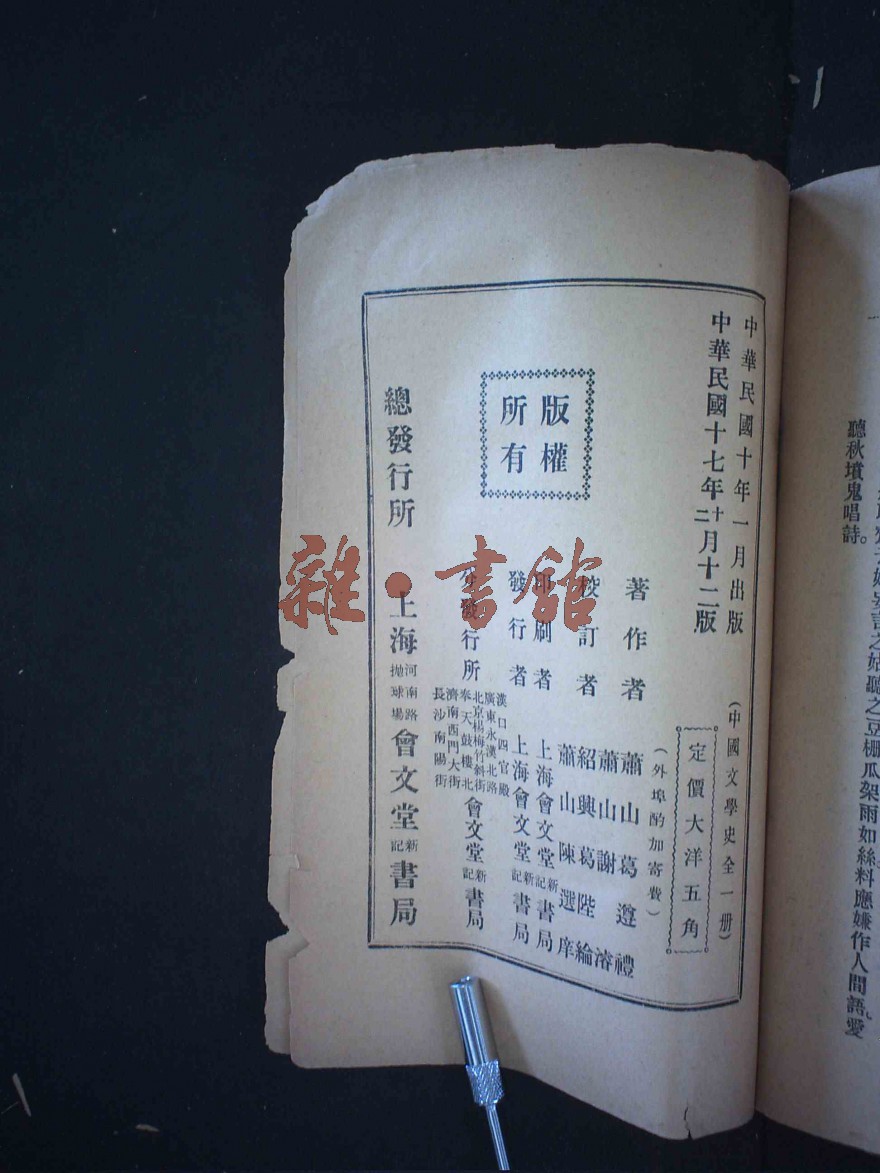 中華民國十年一月出版
中華民國十七年十二月十二版
(中國文學史全一册)
定價大洋五角
(外埠酌加寄費)
著作者 蕭山葛遵禮
校訂者 蕭山謝濬
紹興葛陛綸
蕭山陳選庠
印刷者 上海會文堂新記書局
發行者 上海會文堂新記書局
分發行所 漢口四官殿
廣東永漢北路
北京楊梅竹斜街
奉天鼓樓北
濟南西門大街
長沙南陽街
會文堂新記書局
版權
所有
總發行所 上海河南路拋球場會文堂新記書局
雜·書館
聽之豆棚瓜架雨如絲料應嫌作人間語愛
聽秋墳鬼唱詩。